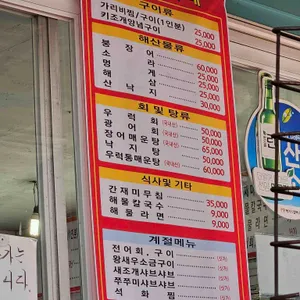 구이류
가리비찜/구이(1인분) 25,000
키조개양념구이 25,000
해산물류
붕장어 60,000
소라 25,000
멍게 25,000
해삼 25,000
산낙지 30,000
회 및 탕류
우럭회(국내산) 50,000
광어회(국내산) 50,000
장어매운탕(국내산) 65,000
낙지탕 50,000
우럭통매운탕(국내산) 60,000
식사및 기타
간재미무침 35,000
해물칼국수 9,000
해물라면 9,000
계절메뉴
전어회,구이 (싯가)
왕새우소금구이 (싯가)
새조개샤브샤브 (싯가)
쭈꾸미샤브샤브 (싯가)
석화찜 (싯가)
가는
니다.